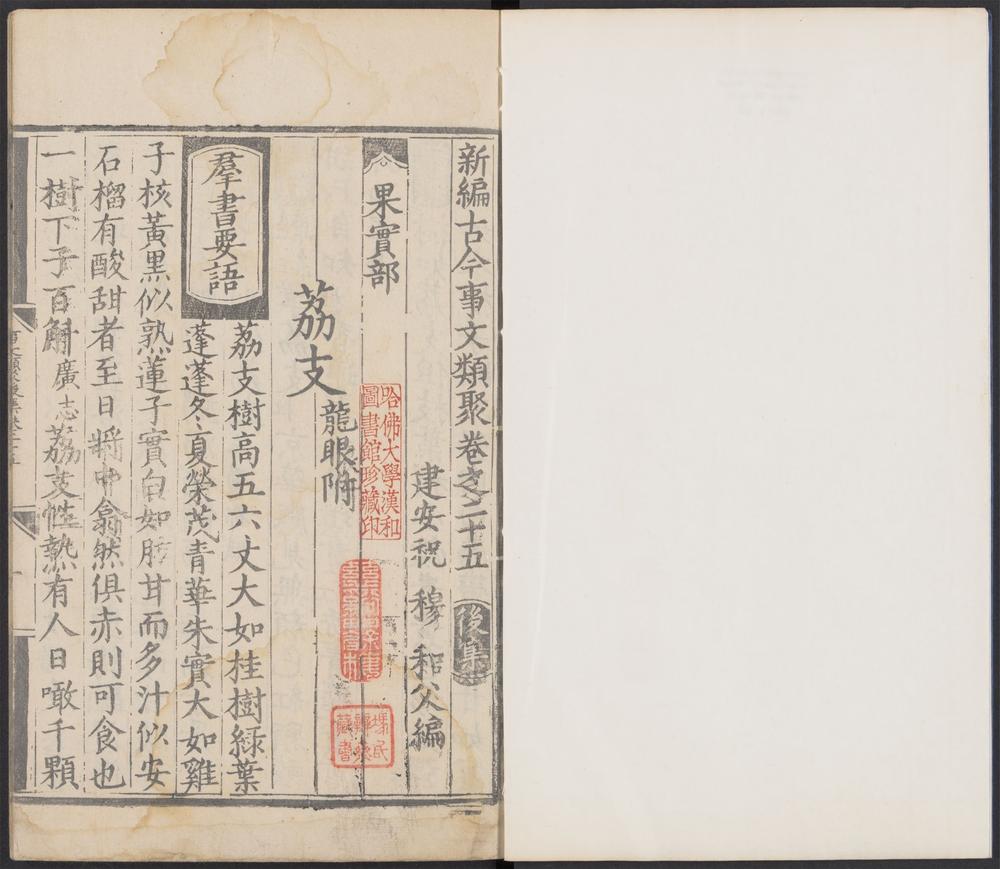 新編古今事文類聚卷之二十五 後集
建安祝 穆 和父編
果實部
荔支 龍眼附
羣書要語
荔支樹高五六丈大如桂樹綠葉
蓬蓬冬夏榮茂青華朱實大如雞
子核黃黑似熟蓮子實白如肪甘而多汁似安
石榴有酸甜者至日將中翕然俱赤則可食也
一樹下子百斛廣志荔支性熱有人日噉千顆
哈佛大學漢和
圖書館珍藏印